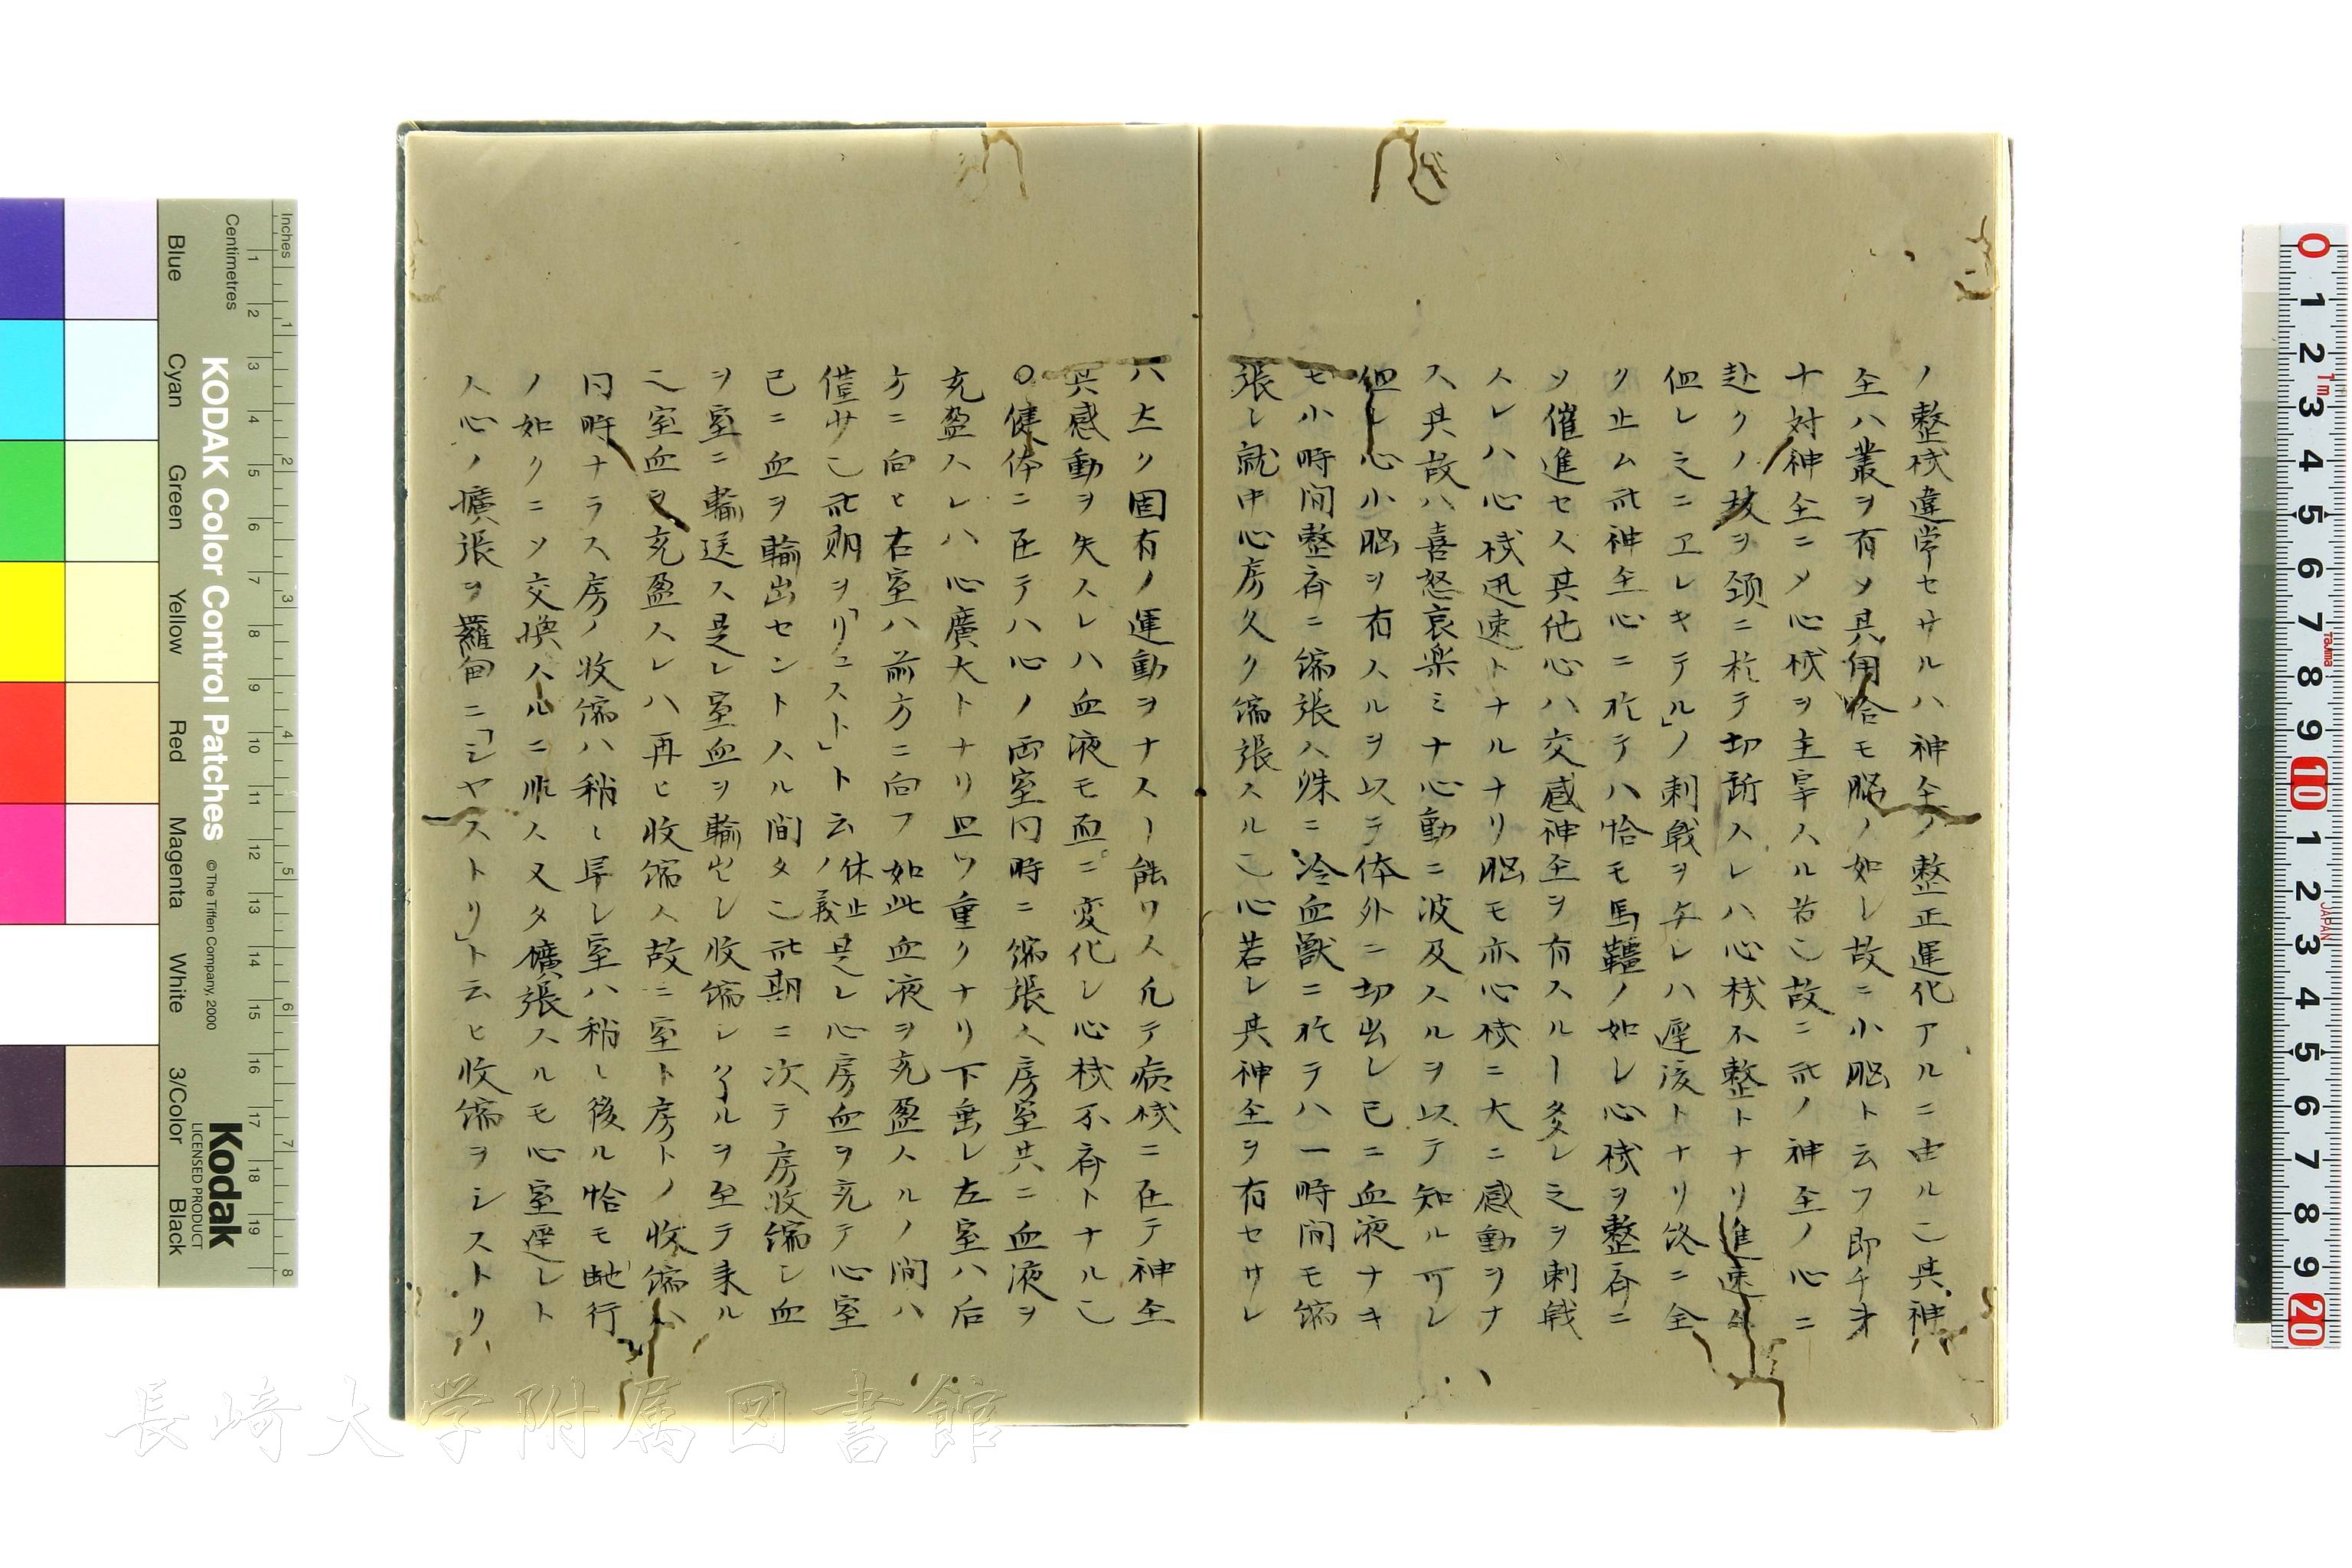 ノ整棫違常セサルハ神全ノ整正運化アルニ由ル乄其神
全ハ叢ヲ有〆其用恰モ脳ノ如し故ニ小脳ト云フ即チ才
十対神全ニ〆心棫ヲ主宰スル者乄故ニ此ノ神全ノ心ニ
赴クノ枝ヲ頚ニ於テ切断スレハ心棫不整トナリ進速
但レ之ニヱレキテル」ノ刺戟ヲ与レハ遅浚トナリ終ニ全
ク止ム此神全心ニ於テハ恰モ馬韁ノ如し心棫ヲ整斉ニ
〆催進セス其他心ハ交感神全ヲ有スルー多し之ヲ刺戟
スレハ心棫迅速トナルナリ脳モ亦心棫ニ大ニ感動ヲナ
ス其故ハ喜怒哀楽ミナ心動ニ波及スルヲ以テ知ル可し
但し心小脳ヲ有スルヲ以テ体外ニ切出し已ニ血液ナキ
モ小時間整斉ニ縮張ス殊ニ冷血獣ニ於テハ一時間モ縮
張し就中心房久ク縮張スル乄心若し其神全ヲ有セサレ
ハ上ク固有ノ運動ヲナスー能ワス凡テ病棫ニ在テ神全
其感動ヲ失スレハ血液モ直ニ変化し心棫不斉トナル乄
○健体ニ在テハ心ノ両室同時ニ縮張ス房室共ニ血液ヲ
充盈スレハ心廣大トナリ且ツ重クナリ下垂し左室ハ后
方ニ向ヒ右室ハ前方ニ向フ如此血液ヲ充盈スルノ間ハ
僅少乄此期ヲ「リュスト」ト云休止ノ義是し心房血ヲ充テ心室
已ニ血ヲ輸出セントスル間タ乄此期ニ次テ房收縮し血
ヲ室ニ輸送ス是し室血ヲ輸出し收縮し終ルヲ至テ来ル
乄室血又充盈スレハ再ヒ收縮ス故ニ室ト房トノ收縮ハ
同時ナラス房ノ收縮ハ稍し早し室ハ稍し後ル恰モ虵行
ノ如クニ〆交換スルニ非ス又タ擴張スルモ心室遅レト
ス心ノ擴張ヲ羅甸ニ「ジヤストリ」ト云ヒ收縮ヲシストリ
長崎大学附属図書館
KODAK Color Control Patches
© The Tiffen Company, 2000
Kodak
LICENSED PRODUCT
Inches
Centimetres
Blue
Cyan
Green
Yellow
Red
Magenta
White
3/Color
Black